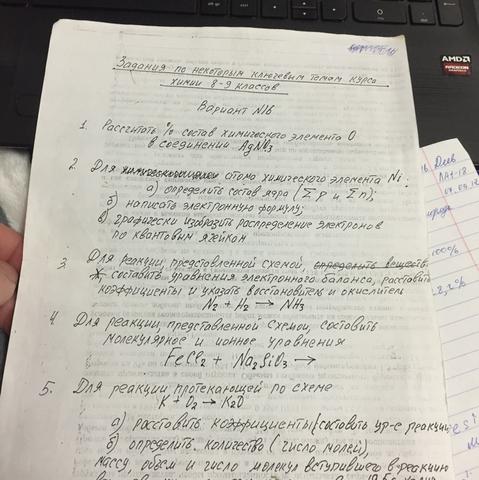 Задания по некоторым ключевым темам курса
химии 8-9 классов
Вариант N16
1. Рассчитать % состав химического элемента O
в соединении AgNO3
2. Для атома химического элемента Ni:
а) определить состав ядра (Σp и Σn);
б) написать электронную формулу;
в) графически изобразить распределение электронов
по квантовым ячейкам
3. Для реакции, представленной схемой, определить веществ
составить уравнения электронного баланса, расставить
коэффициенты и указать восстановитель и окислитель
N2 + H2 → NH3
4. Для реакции, представленной схемой, составить
молекулярное и ионное уравнения
FeCl2 + Na2SiO3 →
5. Для реакции протекающей по схеме
K + O2 → K2O
а) расставить коэффициенты/составить ур-е реакции
б) определить количество (число молей),
массу, объем и число молекул вступившего в реакцию
AMD
RADEON
GRAPHICS
100%